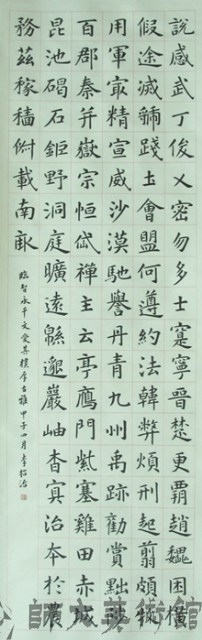 說感武丁俊乂密勿多士寔寧晉楚更霸趙魏困橫
假途滅虢踐土會盟何遵約法韓弊煩刑起翦頗牧
用軍㝡精宣威沙漠馳譽丹青九州禹跡勸賞黜陟
百郡秦并嶽宗恒岱禪主云亭鴈門紫塞雞田赤城
昆池碣石鉅野洞庭曠遠緜邈巖岫杳冥治本於農
務茲稼穡俶載南畝
臨智永千文愛其樸厚古雅甲子四月李